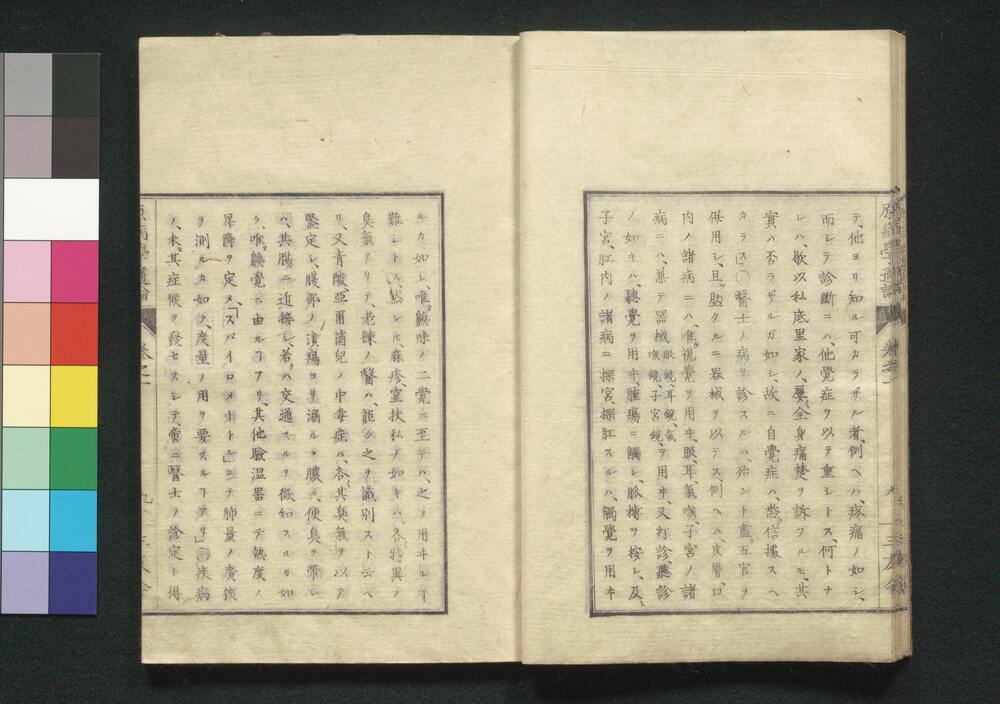 テ、他ヨリ知ル可カラザル者、例ヘハ、疼痛ノ如シ、
而シテ診斷ニハ、他覺症ヲ以テ重シトス、何トナ
レハ、歇以私底里家ノ、屡〻全身痛楚ヲ訴フルモ、其
實ハ否ラザルガ如シ、故ニ自覺症ハ、悉ク信據スヘ
カラス〇醫士ノ病ヲ診スルハ、殆ント盡ク五官ヲ
供用シ、且ツ助クルニ器械ヲ以テス、例ヘハ、皮膚、口
内ノ諸病ニハ、唯視覺ヲ用ヰ、眼、耳、氣喉、子宮ノ諸
病ニハ、兼テ器械眼鏡、耳鏡、氣喉鏡、子宮鏡、ヲ用ヰ、又打診、聽診
ノ如キハ、聽覺ヲ用ヰ、腫瘍ニ觸レ、脈搏ヲ按シ、及ヒ
子宮、肛内ノ諸病ニ探宮、探肛スルハ、觸覺ヲ用ヰ
ルカ如シ、唯嗅味ノ二覺ニ至テハ、之ヲ用ヰルヿ
難シトス、然レﾄﾓ、麻疹、窒扶私ノ如キハ、各特異ノ
臭氣アリテ、老練ノ醫ハ、能ク之ヲ識別スト云ヘ
リ、又青酸、亞爾箇兒ノ中毒症ハ、各其臭氣ヲ以テ
鑒定シ、腹部ノ潰瘍ヨリ漏ルヽ膿ニ、便臭ヲ帶レ
ハ、其腸ニ近接シ、若クハ交通スルヲ徴知スルカ如
ク、唯嗅覺ニ由ルヿアリ、其他驗温器ニテ熱度ノ
昇降ヲ定メ、「スパイロメートル」ニテ肺量ノ廣狹
ヲ測ルカ如ク、度量ノ用ヲ要スルヿアリ」疾病
ノ、未タ其症候ヲ發セスシテ、常ニ醫士ノ診定シ得